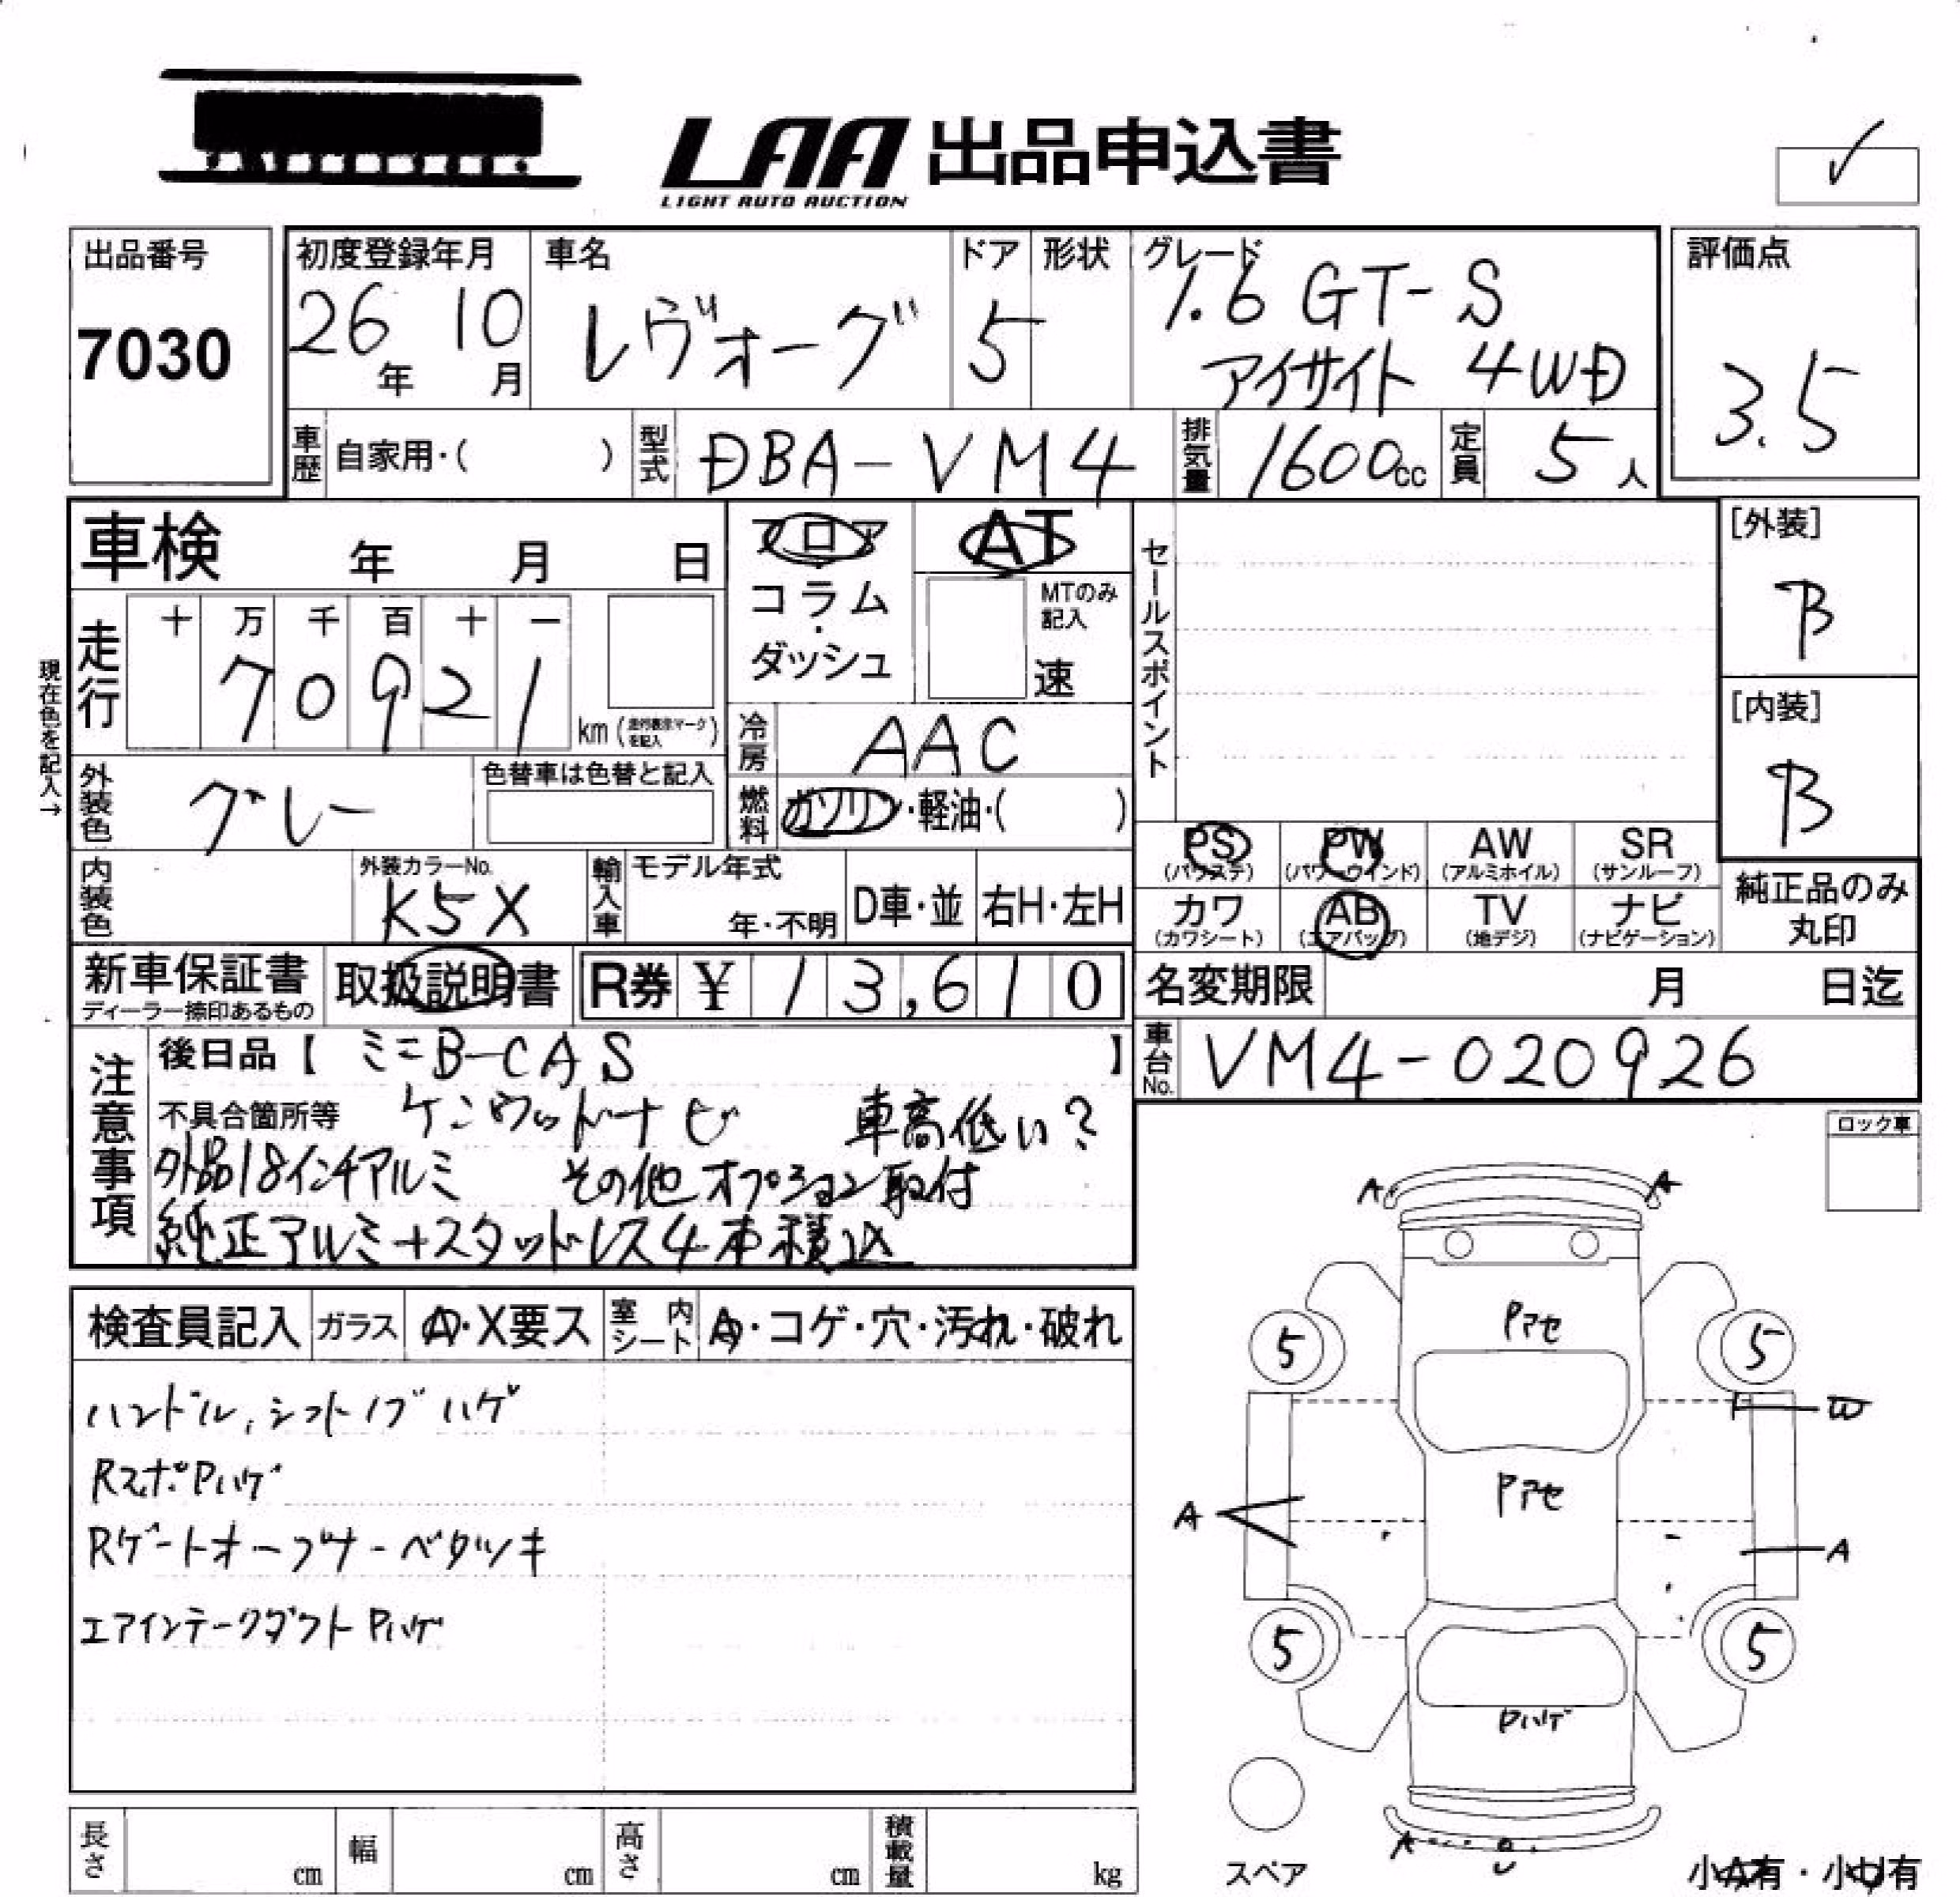 LAA 出品申込書
LIGHT AUTO AUCTION
✓
出品番号
7030
初度登録年月
26年 10月
車名
レヴォーグ
ドア
5
形状
グレード
1.6 GT-S
アイサイト 4WD
評価点
3.5
車歴 自家用・( )
型式 DBA-VM4
排気量 1600cc
定員 5人
車検 年 月 日
フロア
コラム・
ダッシュ
AT
MTのみ記入
速
セールスポイント
[外装]
B
[内装]
B
現在色を記入→
走行
十 万 千 百 十 一
7 0 9 2 1
km (走行表示マークを記入)
冷房 AAC
燃料 ガソリン・軽油・( )
外装色 グレー
色替車は色替と記入
内装色
外装カラーNo.
K5X
輸入車
モデル年式
年・不明
D車・並
右H・左H
PS (パワステ)
PW (パワーウインド)
AW (アルミホイル)
SR (サンルーフ)
カワ (カワシート)
AB (エアバッグ)
TV (地デジ)
ナビ (ナビゲーション)
純正品のみ
丸印
新車保証書
ディーラー捺印あるもの
取扱説明書
R券 ¥ 13,610
名変期限 月 日迄
車台No. VM4-020926
注意事項
後日品【 ミニB-CAS 】
不具合箇所等 ケンウッドナビ 車高低い?
外品18インチアルミ その他オプション取付
純正アルミ+スタッドレス4本積込
ロック車
検査員記入
ガラス A・X要ス
室内シート A・コゲ・穴・汚れ・破れ
ハンドル, シフトノブ ハゲ
RスポPハゲ
Rゲートオープナーベタツキ
エアインテークダクトPハゲ
A A
Pアセ
5 5
W
Pアセ
A
A
5 5
Pハゲ
スペア
小A有・小U有
長さ cm
幅 cm
高さ cm
積載量 kg